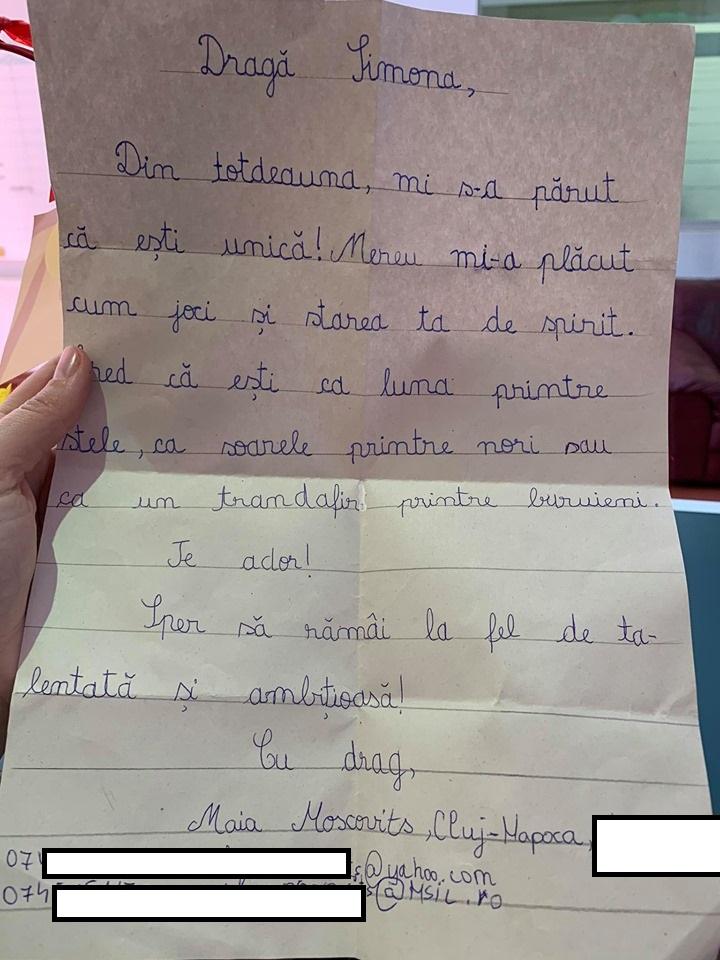 Dragă Simona,
Din totdeauna, mi s-a părut
că ești unică! Mereu mi-a plăcut
cum joci și starea ta de spirit.
red că ești ca luna printre
stele, ca soarele printre nori sau
ca un trandafir printre buruieni.
Te ador!
Sper să rămâi la fel de ta-
lentată și ambițioasă!
Cu drag,
Maia Moscovits, Cluj-Napoca,
07 @yahoo.com
074 @MSIL.ro